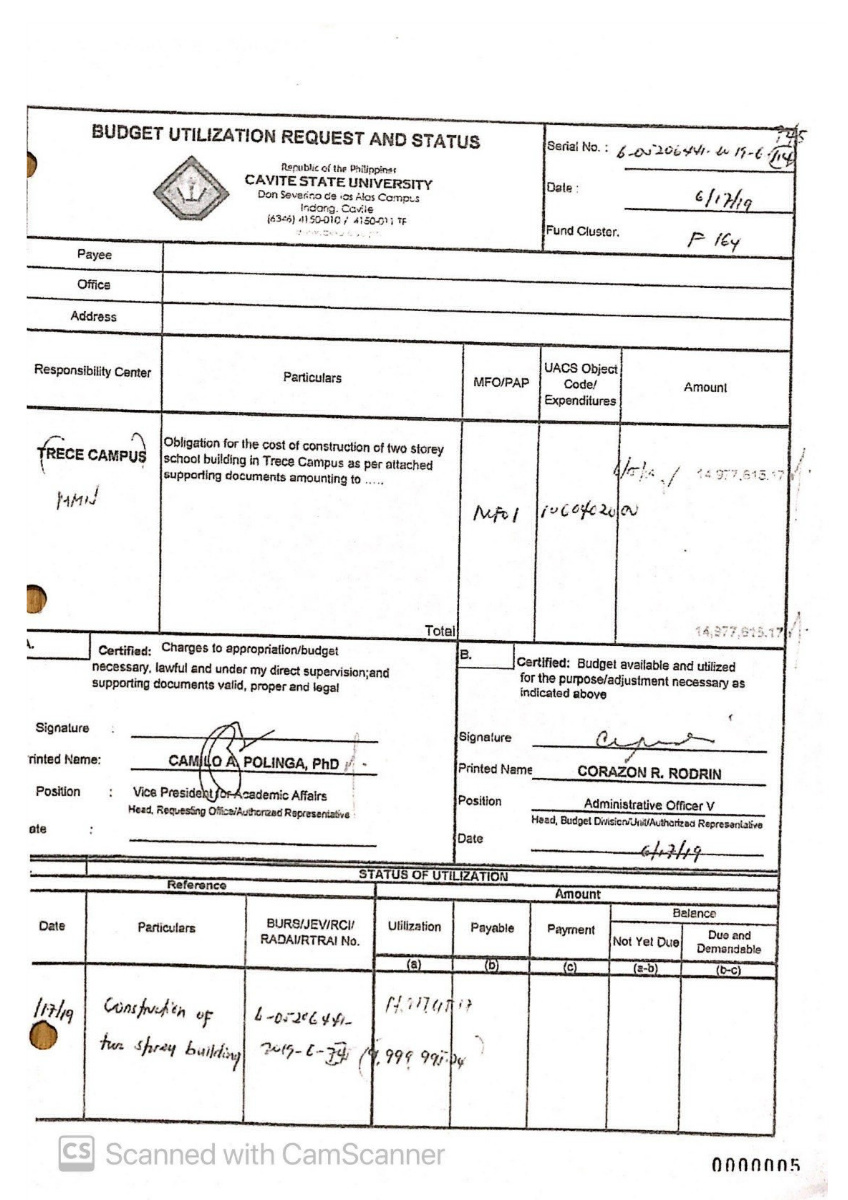 BUDGET UTILIZATION REQUEST AND STATUS
Republic of the Philippines
CAVITE STATE UNIVERSITY
Don Severino de las Alas Campus
Indang, Cavite
(6346) 4150-010 / 4150-011 TF
Serial No. :
Date : 6/17/19
Fund Cluster. F 164
Payee
Office
Address
Responsibility Center Particulars MFO/PAP UACS Object Code/ Expenditures Amount
TRECE CAMPUS
Obligation for the cost of construction of two storey
school building in Trece Campus as per attached
supporting documents amounting to .....
14,977,615.17
MFO1 10604020 00
Total 14,977,615.17
Certified: Charges to appropriation/budget
necessary, lawful and under my direct supervision;and
supporting documents valid, proper and legal
Signature :
rinted Name: CAMILO A. POLINGA, PhD
Position : Vice President for Academic Affairs
Head, Requesting Office/Authorized Representative
ate :
B. Certified: Budget available and utilized
for the purpose/adjustment necessary as
indicated above
Signature
Printed Name CORAZON R. RODRIN
Position Administrative Officer V
Head, Budget Division/Unit/Authorized Representative
Date 6/17/19
STATUS OF UTILIZATION
Reference Amount
Date Particulars BURS/JEV/RCI/ RADAI/RTRAI No. Utilization Payable Payment Balance
Not Yet Due Due and Demandable
(a) (b) (c) (a-b) (b-c)
/17/19 Construction of 6-05206441-
building 2019-6-
CS Scanned with CamScanner
0000005